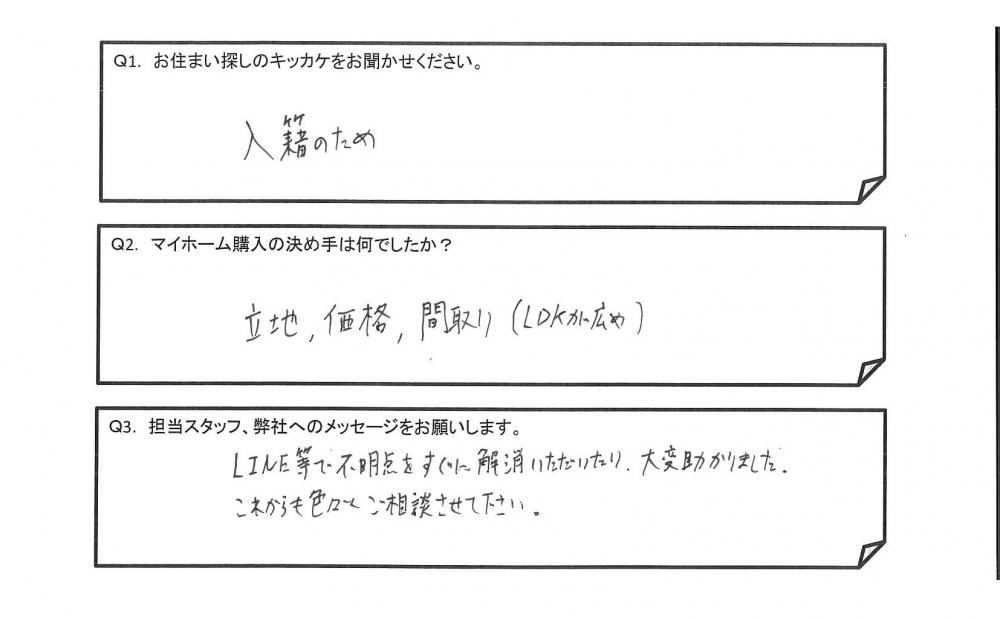 Q1. お住まい探しのキッカケをお聞かせください。
入籍のため
Q2. マイホーム購入の決め手は何でしたか？
立地, 価格, 間取り (LDKが広め)
Q3. 担当スタッフ、弊社へのメッセージをお願いします。
LINE等で不明点をすぐに解消いただいたり、大変助かりました。
これからも色々とご相談させて下さい。